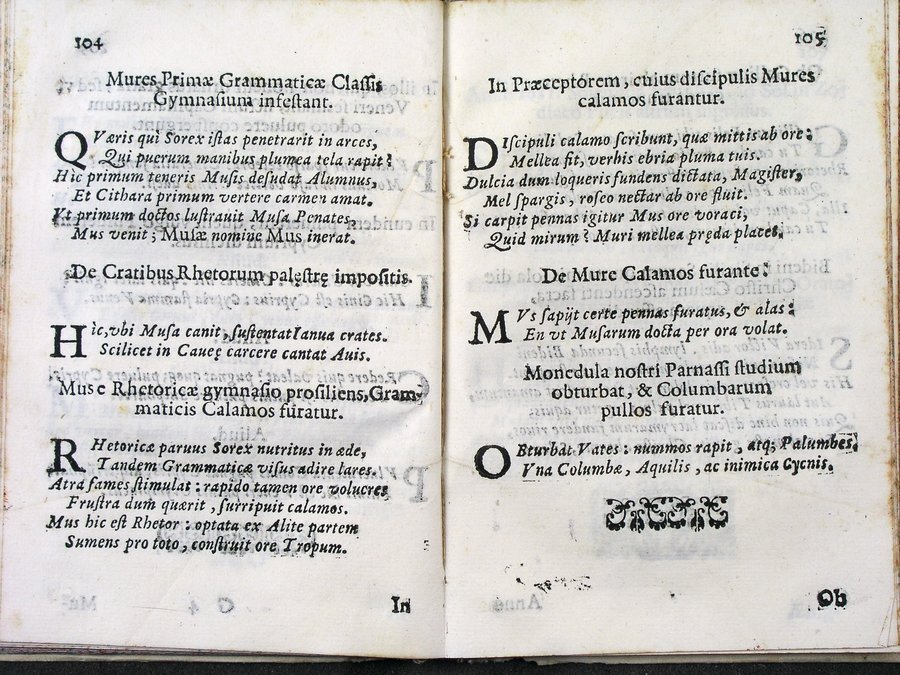 104
Mures Primæ Grammaticæ Classis
Gymnasium infestant.
QVæris qui Sorex istas penetrarit in arces,
Qui puerum manibus plumea tela rapit?
Hic primum teneris Musis desudat Alumnus,
Et Cithara primum vertere carmen amat.
Vt primum doctos lustrauit Musa Penates,
Mus venit; Musæ nomine Mus inerat.
De Cratibus Rhetorum palęstrę impositis.
HIc, vbi Musa canit, sustentat Ianua crates.
Scilicet in Caueę carcere cantat Auis.
Mus e Rhetoricæ gymnasio prosiliens, Gram-
maticis Calamos furatur.
RHetoricæ paruus Sorex nutritus in æde,
Tandem Grammaticæ visus adire lares.
Atra fames stimulat: rapido tamen ore volucres
Frustra dum quærit, surripuit calamos.
Mus hic est Rhetor: optata ex Alite partem
Sumens pro toto, construit ore Tropum.
In
105
In Præceptorem, cuius discipulis Mures
calamos furantur.
DIscipuli calamo scribunt, quæ mittis ab ore:
Mellea fit, verbis ebria pluma tuis.
Dulcia dum loqueris fundens dictata, Magister,
Mel spargis, roseo nectar ab ore fluit.
Si carpit pennas igitur Mus ore voraci,
Quid mirum? Muri mellea pręda placet.
De Mure Calamos furante.
MVs sapijt certe pennas furatus, & alas:
En vt Musarum docta per ora volat.
Monedula nostri Parnassi studium
obturbat, & Columbarum
pullos furatur.
OBturbat Vates: nummos rapit, atq; Palumbes.
Vna Columbæ, Aquilis, ac inimica Cycnis.
Ob